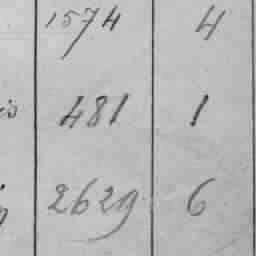 1574 4
481 1
2629 6